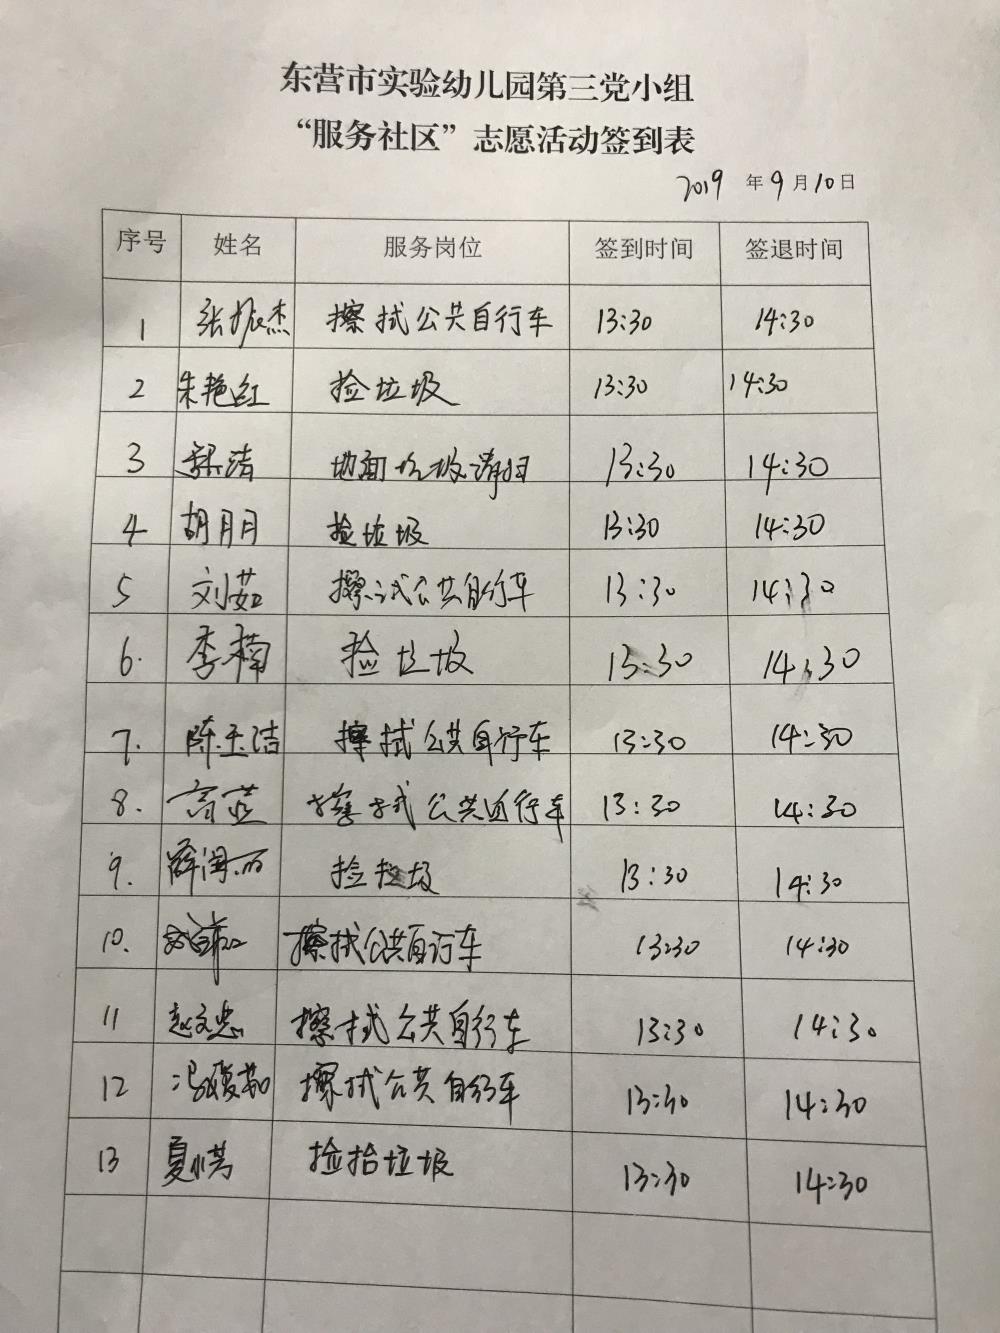 东营市实验幼儿园第三党小组
“服务社区”志愿活动签到表
2019 年 9 月 10 日
序号 姓名 服务岗位 签到时间 签退时间
1 张振杰 擦拭公共自行车 13:30 14:30
2 朱艳红 捡垃圾 13:30 14:30
3 清 地面垃圾清扫 13:30 14:30
4 胡月月 捡垃圾 13:30 14:30
5 刘茹 擦试公共自行车 13:30 14:30
6. 李楠 捡垃圾 13:30 14:30
7. 陈玉洁 擦拭公共自行车 13:30 14:30
8. 高蓝 擦拭公共自行车 13:30 14:30
9. 薛润丽 捡垃圾 13:30 14:30
10. 擦拭公共自行车 13:30 14:30
11 赵文忠 擦拭公共自行车 13:30 14:30
12 冯 擦拭公共自行车 13:30 14:30
13 夏小芳 捡拾垃圾 13:30 14:30